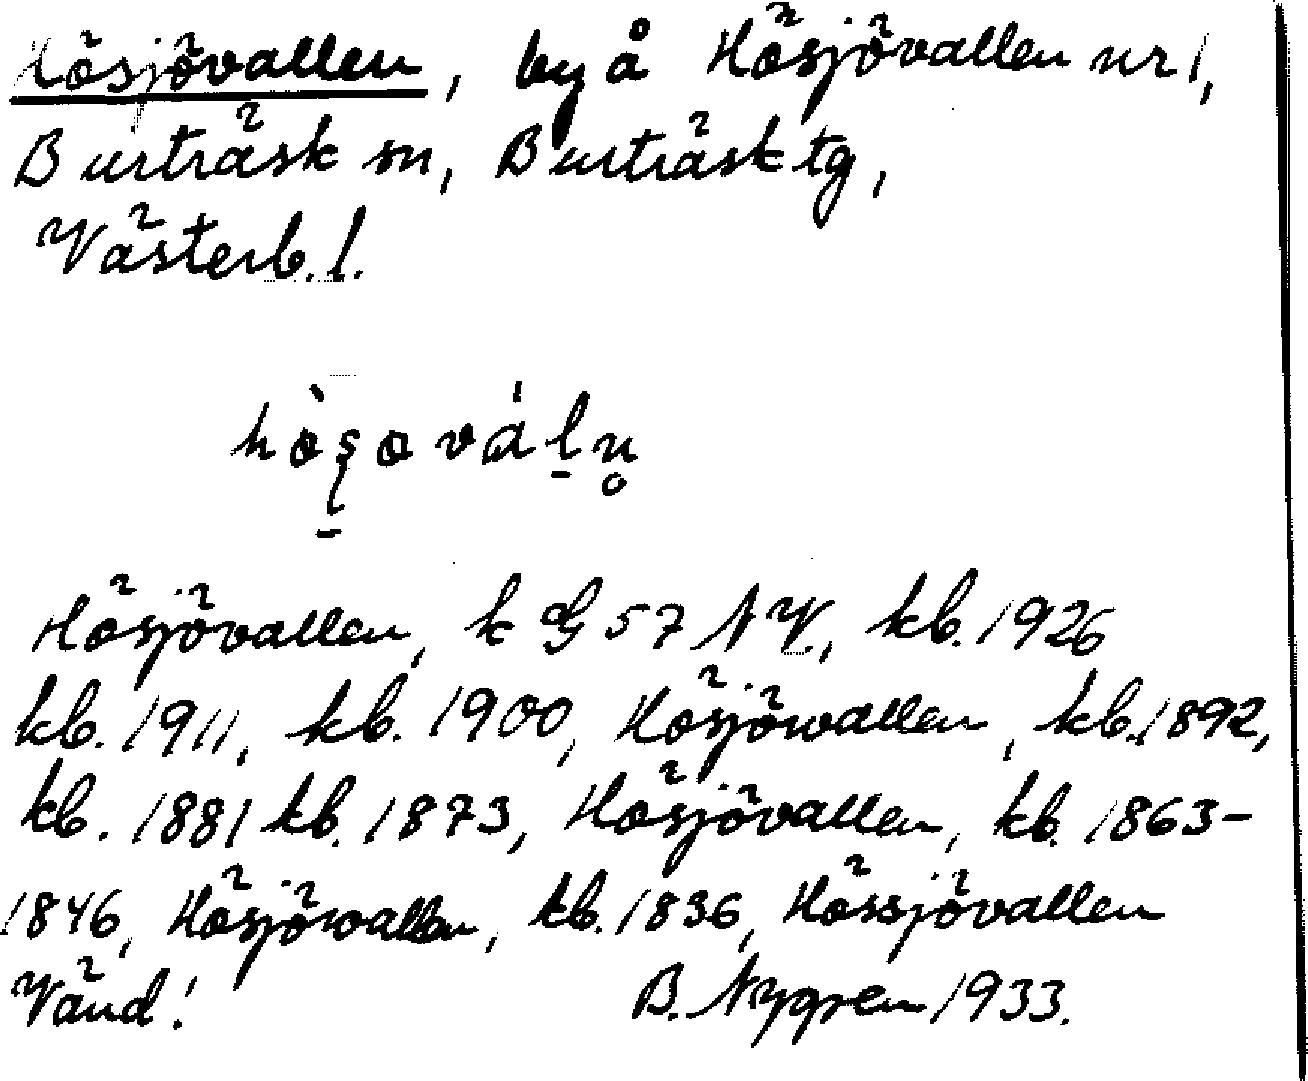 Hösjövallen, by å Hösjövallen nr 1,
Burträsk sn, Burträsk tg,
Västerb. l.
Hösjövallen, k G 57 NV., kb. 1926
kb. 1911, kb. 1900, Hösjöwallen, kb. 1892,
kb. 1881 kb. 1873, Hösjövallen, kb. 1863-
1846, Hösjöwallen, kb. 1836, Hössjövallen
Vänd! B. Nygren 1933.